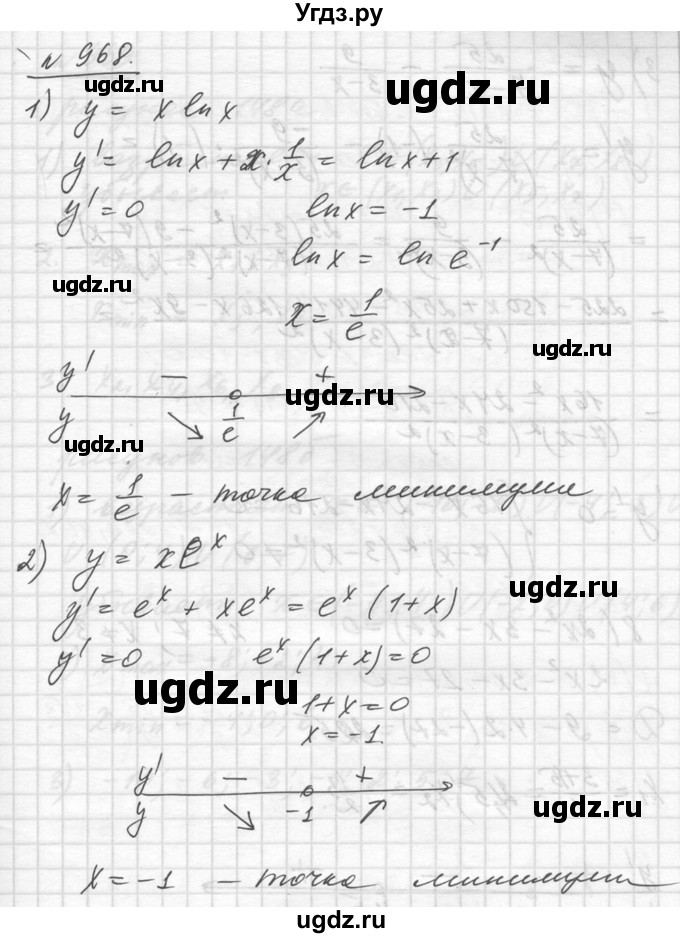 Угдз.ру
№ 968.
1) y = x ln x
y' = ln x + x · 1/x = ln x + 1
y' = 0 ln x = -1
ln x = ln e^-1
x = 1/e
y' - +
y 1/e
x = 1/e - точка минимума
2) y = xe^x
y' = e^x + xe^x = e^x (1+x)
y' = 0 e^x (1+x) = 0
1 + x = 0
x = -1.
y' - +
y -1
x = -1 - точка минимума
ugdz.ru
ugdz.ru
ugdz.ru
ugdz.ru
ugdz.ru
ugdz.ru
ugdz.ru
ugdz.ru
ugdz.ru
ugdz.ru
ugdz.ru
ugdz.ru
ugdz.ru